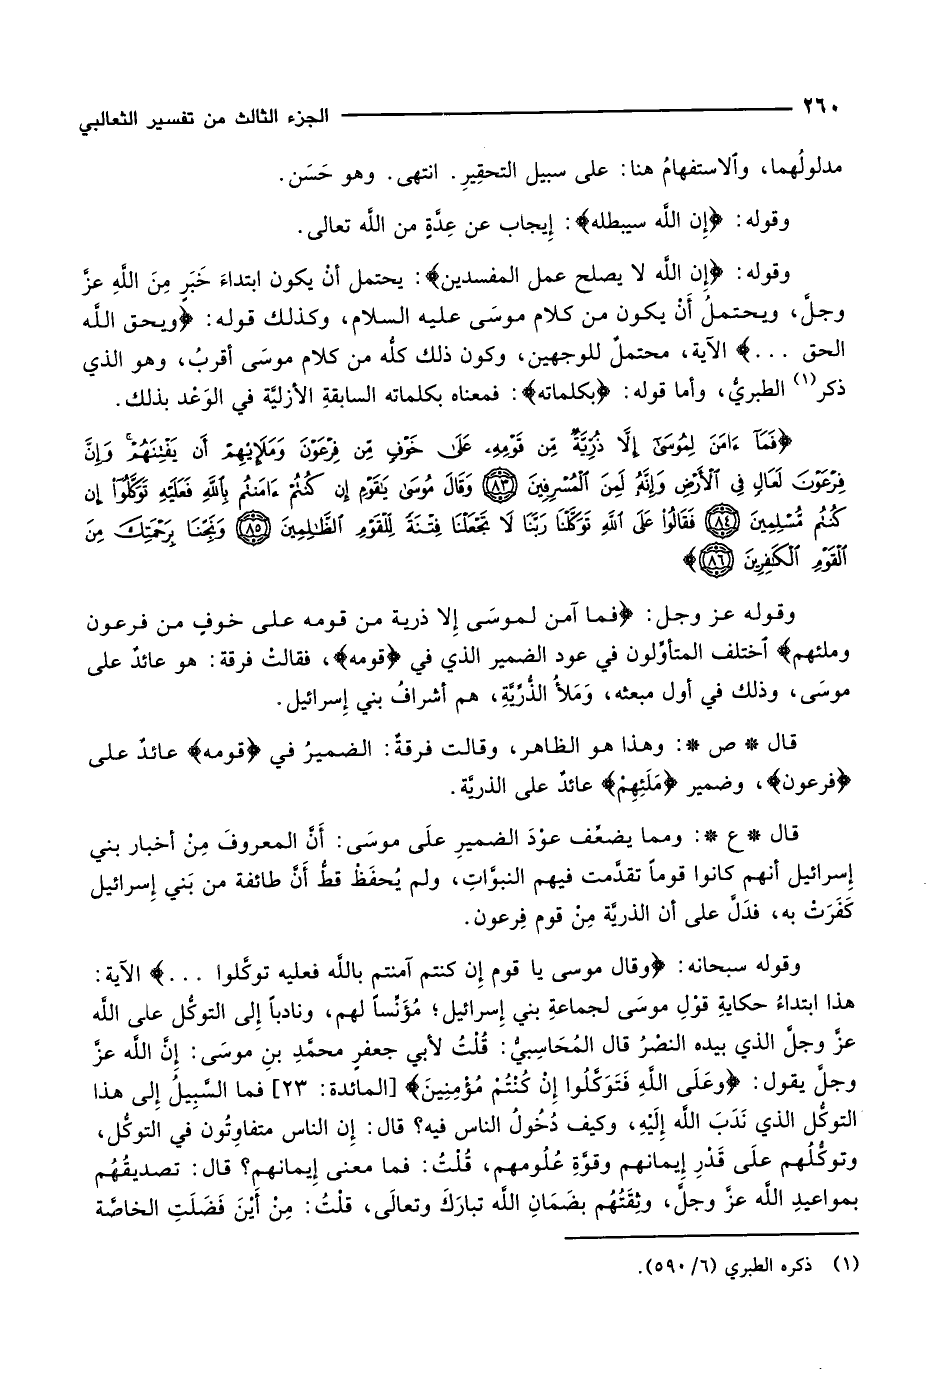 ٢٦٠ الجزء الثالث من تفسير الثعالبي
مدلولُهما، وٱلاستفهامُ هنا: على سبيل التحقِيرِ. انتهى. وهو حَسَن.
وقوله: ﴿إِن اللَّه سيبطله﴾: إِيجاب عن عِدَّةٍ من اللَّه تعالى.
وقوله: ﴿إِن اللَّه لا يصلح عمل المفسدين﴾: يحتمل أنْ يكون ابتداءَ خَبَرٍ مِنَ اللَّهِ عزَّ
وجلَّ، ويحتملُ أَنْ يكون من كلام موسَى عليه السلام، وكذلك قوله: ﴿ويحق اللَّه
الحق ...﴾ الآية، محتملٌ للوجهين، وكون ذلك كلُّه من كلام موسَى أقربُ، وهو الذي
ذكر(١) الطبريُّ، وأما قوله: ﴿بكلماته﴾: فمعناه بكلماته السابقةِ الأزليَّة في الوَعْد بذلك.
﴿فَمَآ ءَامَنَ لِمُوسَىٰٓ إِلَّا ذُرِّيَّةٌ مِّن قَوْمِهِۦ عَلَىٰ خَوْفٍ مِّن فِرْعَوْنَ وَمَلَإِيْهِمْ أَن يَفْتِنَهُمْۚ وَإِنَّ
فِرْعَوْنَ لَعَالٍ فِى ٱلْأَرْضِ وَإِنَّهُۥ لَمِنَ ٱلْمُسْرِفِينَ ٨٣ وَقَالَ مُوسَىٰ يَٰقَوْمِ إِن كُنتُمْ ءَامَنتُم بِٱللَّهِ فَعَلَيْهِ تَوَكَّلُوٓا۟ إِن
كُنتُم مُّسْلِمِينَ ٨٤ فَقَالُوا۟ عَلَى ٱللَّهِ تَوَكَّلْنَا رَبَّنَا لَا تَجْعَلْنَا فِتْنَةً لِّلْقَوْمِ ٱلظَّٰلِمِينَ ٨٥ وَنَجِّنَا بِرَحْمَتِكَ مِنَ
ٱلْقَوْمِ ٱلْكَٰفِرِينَ ٨٦﴾
وقوله عز وجل: ﴿فما آمن لموسَى إِلا ذرية من قومه على خوفٍ من فرعون
وملئهم﴾ ٱختلف المتأوِّلون في عود الضمير الذي في ﴿قومه﴾، فقالتْ فرقة: هو عائدٌ على
موسَى، وذلك في أول مبعثه، وَمَلأُ الذُّرِّيَّةِ، هم أشرافُ بني إِسرائيل.
قال * ص *: وهذا هو الظاهر، وقالت فرقةٌ: الضميرُ في ﴿قومه﴾ عائدٌ على
﴿فرعون﴾، وضمير ﴿مَلَئِهِمْ﴾ عائدٌ على الذريَّة.
قال * ع *: ومما يضعِّف عوْدَ الضميرِ علَى موسَى: أَنَّ المعروفَ مِنْ أخبار بني
إِسرائيل أنهم كانوا قوماً تقدَّمت فيهم النبوَّاتِ، ولم يُحفَظْ قطُّ أَنَّ طائفة من بَني إِسرائيل
كَفَرَتْ به، فدَلَّ على أن الذريَّة مِنْ قوم فِرعون.
وقوله سبحانه: ﴿وقال موسى يا قوم إِن كنتم آمنتم باللَّه فعليه توكَّلوا ...﴾ الآية:
هذا ابتداءُ حكايةِ قوْلِ موسَى لجماعةِ بني إِسرائيل؛ مُؤَنِّساً لهم، ونادباً إِلى التوكُل على اللَّه
عزَّ وجلَّ الذي بيده النصْرُ قال المُحَاسِبيُّ: قُلْتُ لأبي جعفرٍ محمَّدِ بنِ موسَى: إِنَّ اللَّه عزَّ
وجلَّ يقول: ﴿وعَلَى اللَّهِ فَتَوَكَّلُوا إِنْ كُنْتُمْ مُؤْمِنِينَ﴾ [المائدة: ٢٣] فما السَّبِيلُ إِلى هذا
التوكُل الذي نَدَبَ اللَّه إِلَيْهِ، وكيف دُخُولُ الناس فيه؟ قال: إِن الناس متفاوِتُون في التوكُّل،
وتوكُّلهم علَى قَدْرِ إِيمانهم وقوَّةِ عُلُومهم، قُلْتُ: فما معنى إِيمانهم؟ قال: تصديقُهُم
بمواعيدِ اللَّه عزَّ وجلَّ، وثِقَتُهُم بضَمَانِ اللَّه تبارَكَ وتعالَى، قلْتُ: مِنْ أَيْنَ فَضَلَتِ الخاصَّة
(١) ذكره الطبري (٥٩٠/٦).